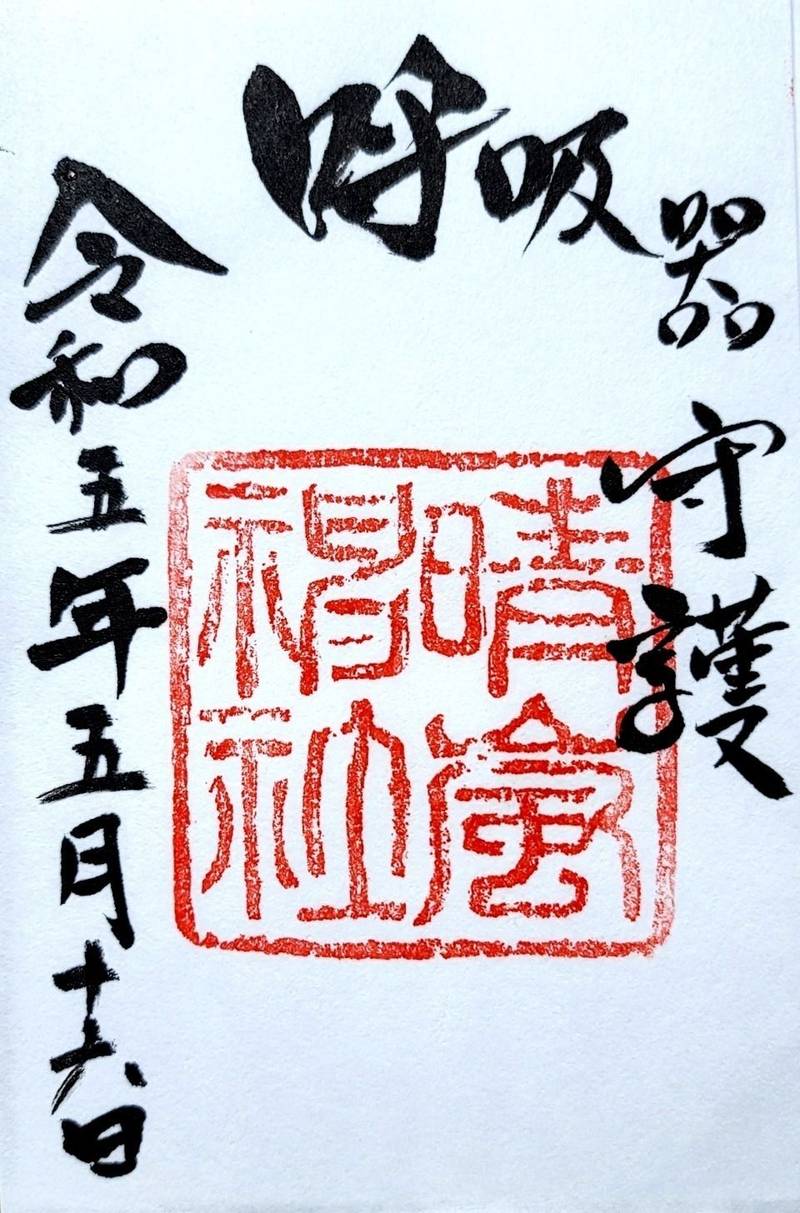 呼吸器守護
晴
神社
令和五年五月十六日